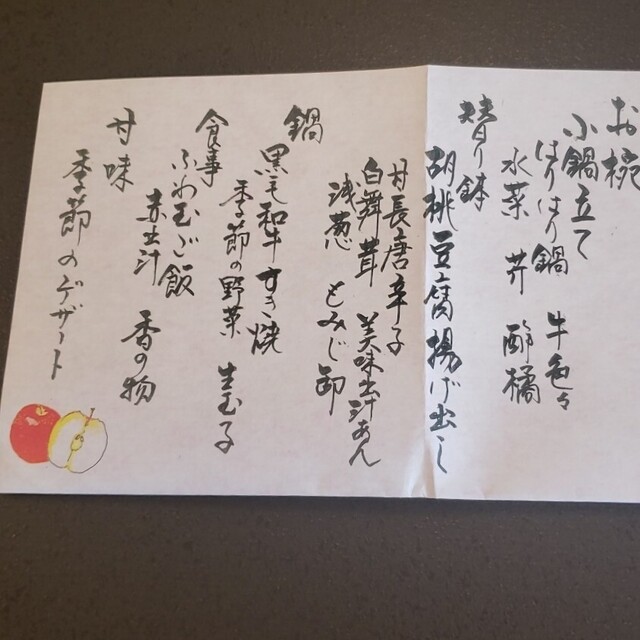 お椀
小鍋立て
はりはり鍋 牛色々
水菜 芹 酢橘
替り鉢
胡桃豆腐揚げ出し
甘長唐辛子 美味出汁あん
白舞茸 もみじ卸
浅葱
鍋
黒毛和牛すき焼
季節の野菜 生玉子
食事
ふわ玉ご飯
赤出汁 香の物
甘味
季節のデザート